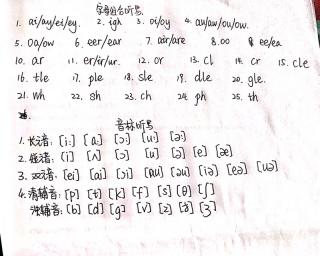 字母组合听写
1. ai/ay/ei/ey. 2. igh 3. oi/oy 4. au/aw/ou/ow.
5. oa/ow 6. eer/ear 7. air/are 8. oo 9. ee/ea
10. ar 11. er/ir/ur. 12. or 13. cl 14. cr 15. cle
16. tle 17. ple 18. sle 19. dle 20. gle.
21. wh 22. sh 23. ch 24. ph 25. th
音标听写
1. 长元音: [i:] [a:] [ɔ:] [u:] [ə:]
2. 短音: [i] [ʌ] [ɔ] [u] [ə] [e] [æ]
3. 双元音: [ei] [ai] [ɔi] [au] [əu] [iə] [eə] [uə]
4. 清辅音: [p] [t] [k] [f] [s] [θ] [ʃ]
浊辅音: [b] [d] [g] [v] [z] [ð] [ʒ]